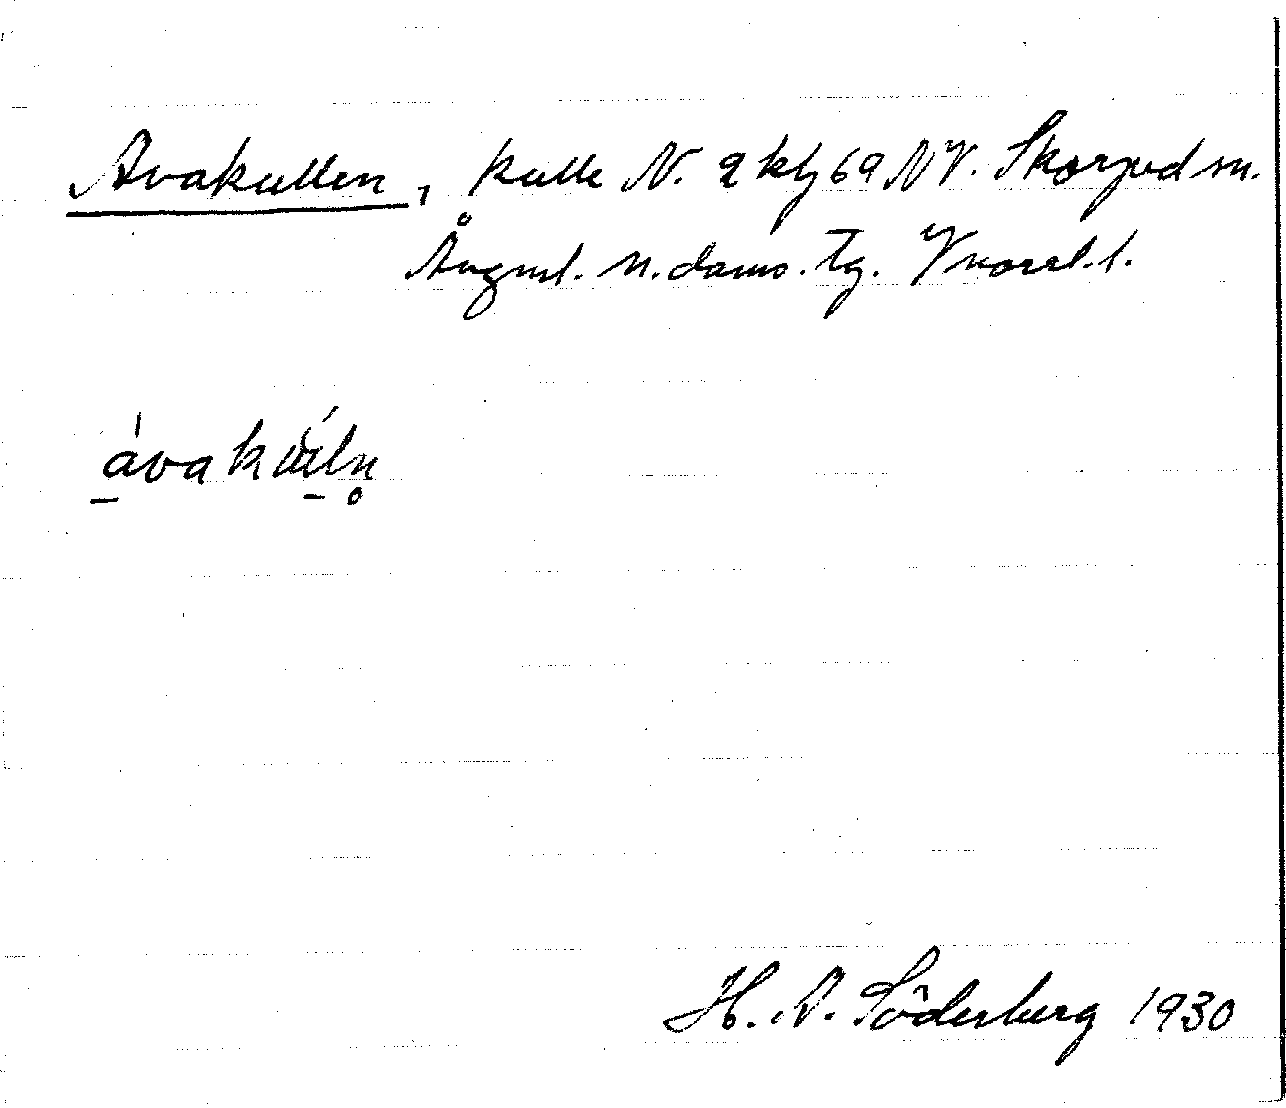 Avakullen, kulle N. 2 kbl 69 NV. Skorped sn.
Ångml. n. doms. tg. Vnorrl. l.
ávakúln̥
H. A. Söderberg 1930